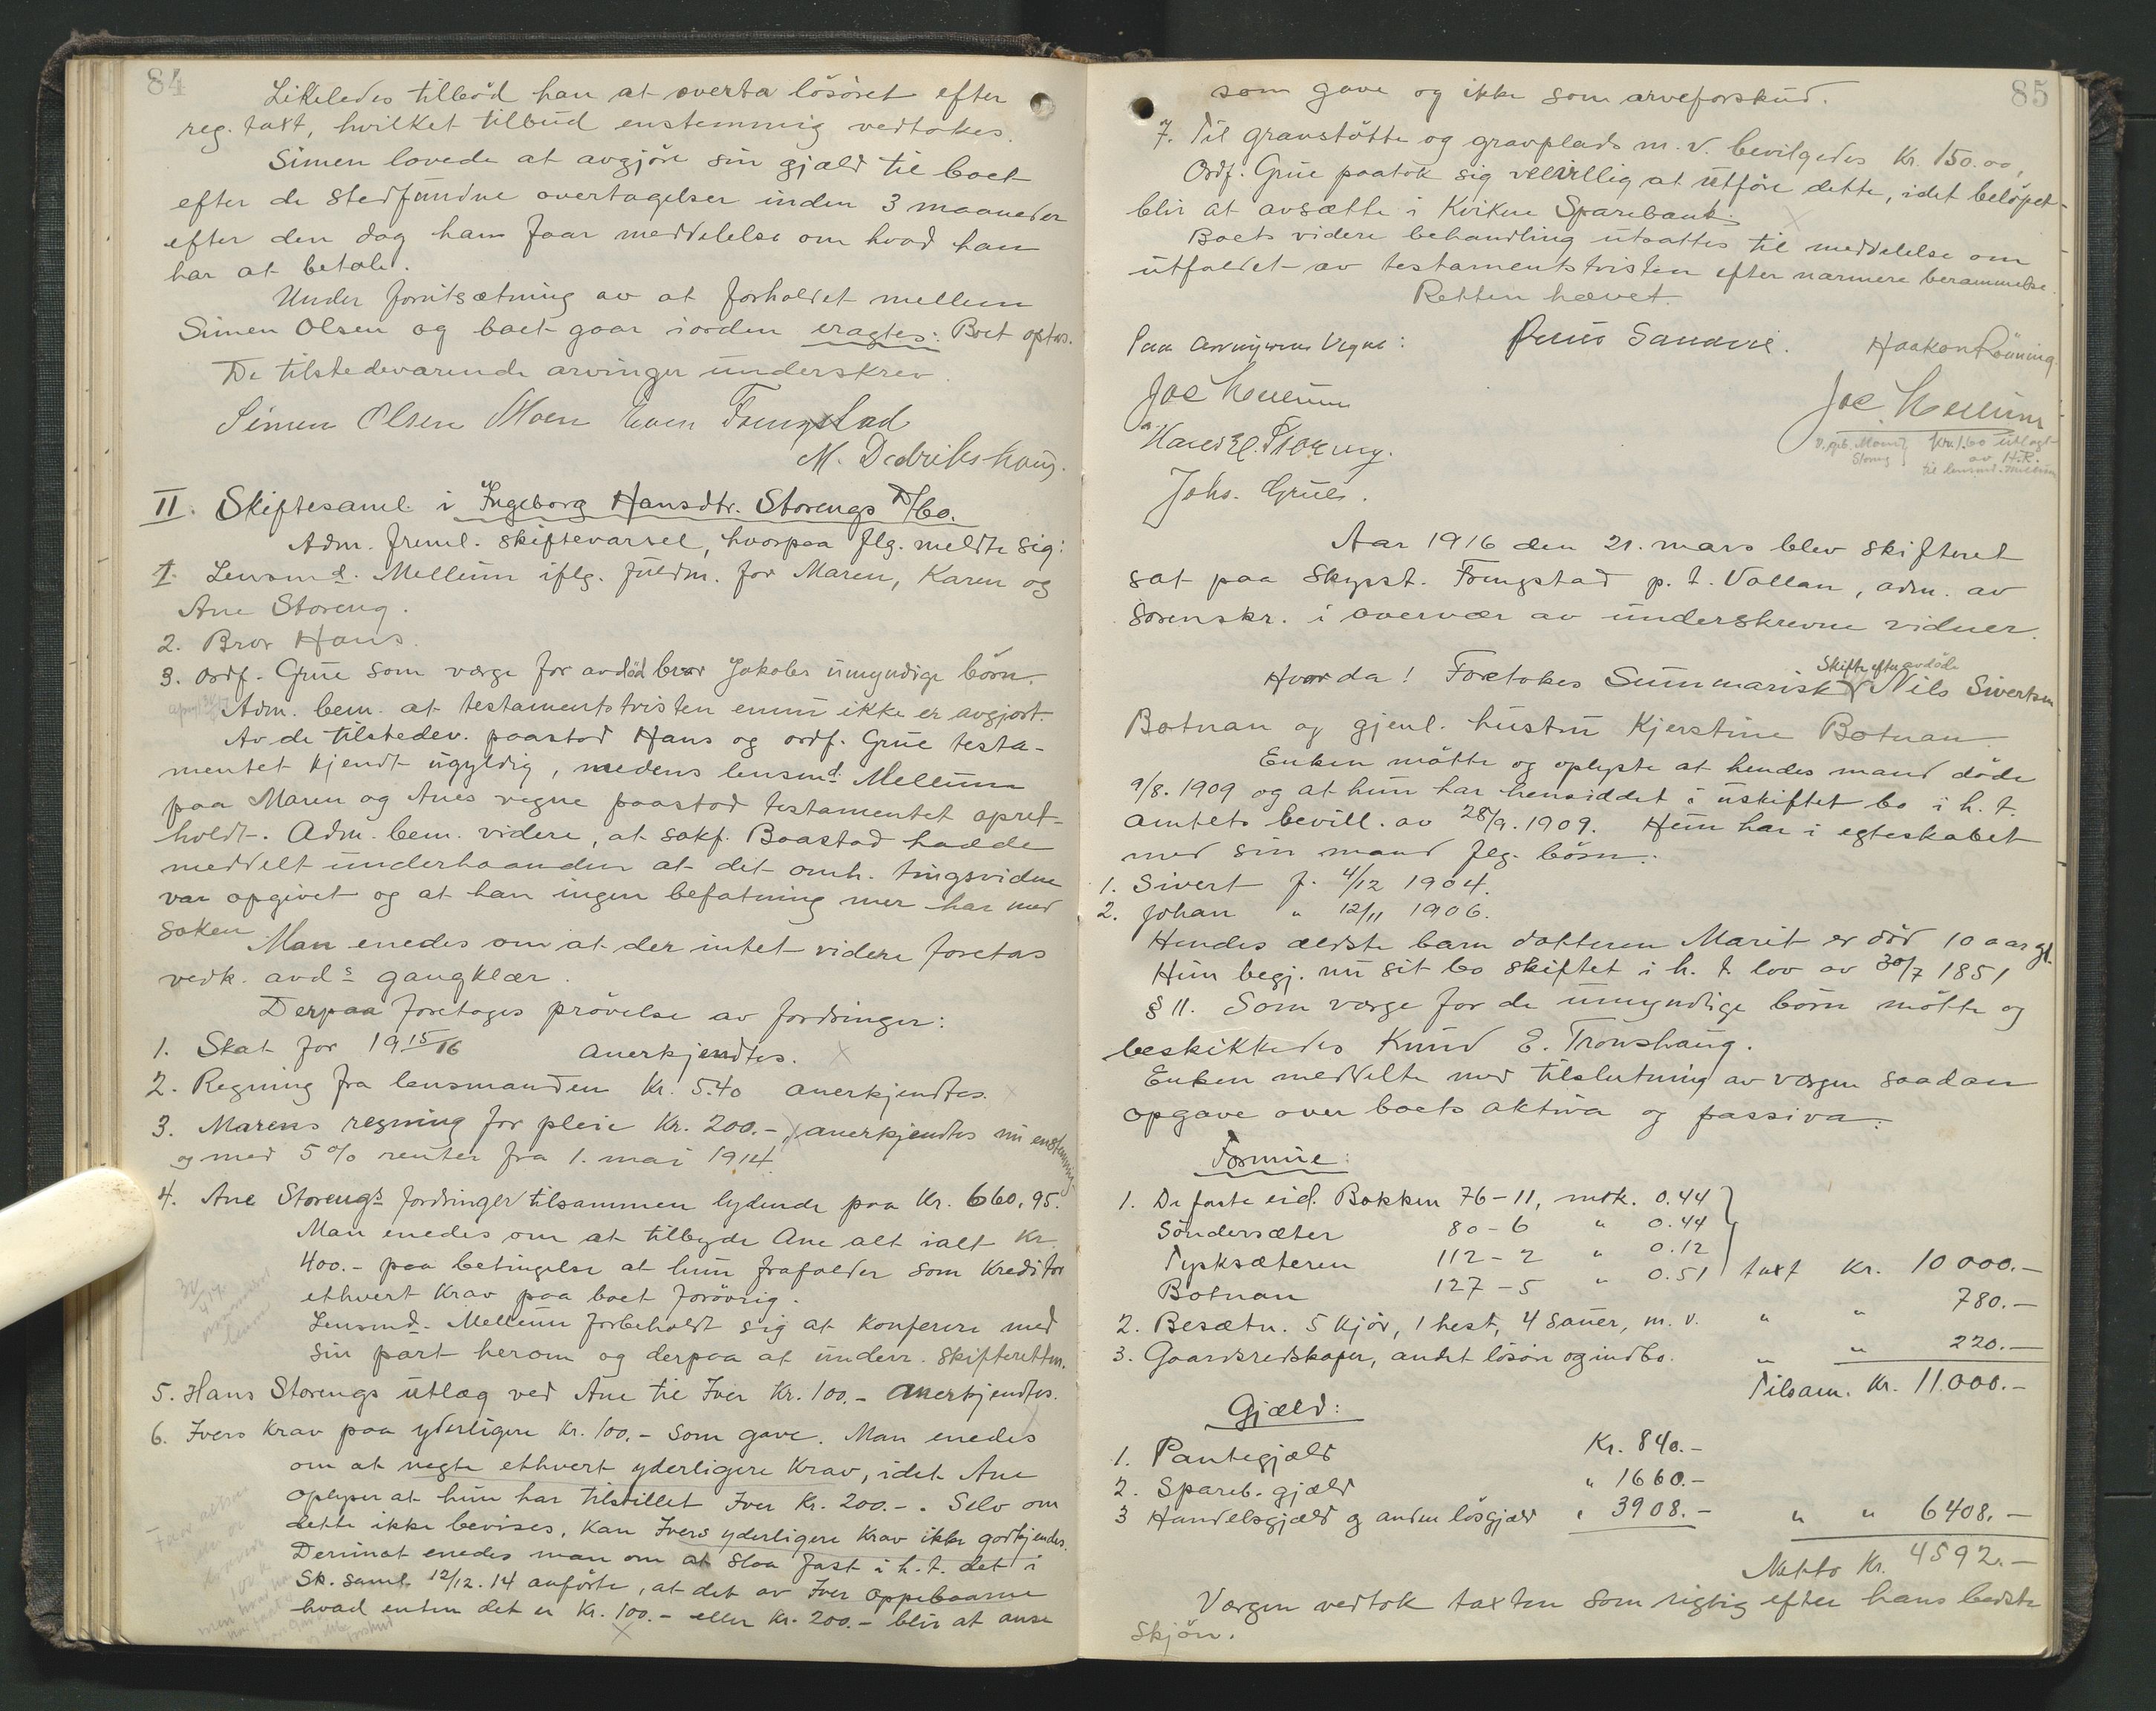 84
Likeledes tilbød han at overta løsøret efter
reg. taxt, hvilket tilbud enstemmig vedtokes.
Simen lovede at avgjøre sin gjæld til boet
efter de stedfundne overtagelser inden 3 maaneder
efter den dag han faar meddelelse om hvad han
har at betale.
Under forutsætning av at forholdet mellem
Simen Olsen og boet gaar iorden eragtes: Boet optas.
De tilstedeværende arvinger underskrev.
Simen Olsen Moen Even Frengstad
M. Dedrikshaug.
II. Skiftesaml. i Ingeborg Hansdtr. Storengs D/bo.
Adm. freml. skiftevarsel, hvorpaa flg. meldte sig:
1. Lensmd. Mellum iflg. fuldm. for Maren, Karen og
Ane Storeng.
2. Bror Hans.
3. Ordf. Grue som værge for avdød bror Jakobs umyndige børn.
Adm. bem. at testamentstvisten ennu ikke er avgjort.
Av de tilstedev. paastod Hans og ordf. Grue testa-
mentet kjendt ugyldig, medens lensmd. Mellum
paa Maren og Anes vegne paastod testamentet opret-
holdt. Adm. bem. videre, at sakf. Baastad hadde
meddelt underhaanden at det omh. tingsvidne
var opgivet og at han ingen befatning mer har med
saken.
Man enedes om at der intet videre foretas
vedk. avds gangklær.
Derpaa foretoges prøvelse av fordringer:
1. Skat for 1915/16 anerkjendtes. x
2. Regning fra lensmanden Kr. 5.40 anerkjendtes. x
3. Marens regning for pleie Kr. 200.- anerkjendtes nu enstemmig
og med 5% renter fra 1. mai 1914.
4. Ane Storengs fordringer tilsammen lydende paa Kr. 660.95.
Man enedes om at tilbyde Ane alt ialt Kr.
400.- paa betingelse at hun frafalder som kreditor
ethvert krav paa boet forøvrig.
Lensmd. Mellum forbeholdt sig at konferere med
sin part herom og derpaa at underr. skifteretten.
5. Hans Storengs utlæg ved Ane til Iver Kr. 100.- Anerkjendtes.
6. Ivers krav paa yderligere Kr. 100.- som gave. Man enedes
om at negte ethvert yderligere krav, idet Ane
oplyser at hun har tilstillet Iver Kr. 200.-. Selv om
dette ikke bevises, kan Ivers yderligere krav ikke godkjendes.
Derimot enedes man om at slaa fast i h. t. det i
Sk. saml. 12/12.14 anførte, at det av Iver oppebaarne
hvad enten det er Kr. 100.- eller Kr. 200.- blir at anse
x
85
som gave og ikke som arveforskud.
7. Til gravstøtte og gravplads m. v. bevilgedes Kr. 150.00,
Ordf. Grue paatok sig velvillig at utføre dette, idet beløpet
blir at avsætte i Kvikne Sparebank.
Boets videre behandling utsattes til meddelelse om
utfaldet av testamentstvisten efter nærmere berammelse.
Retten hævet.
Paa Arvingernes Vegne:
Haakon Rönning
Joe Mellum
Joe Mellum
Kr. 1.60 utlagt
av H.R.
til lensmd. Mellum
Johs. Grue.
Aar 1916 den 21. mars blev skifteret
sat paa Skysst. Frengstad p. t. Vollan, adm. av
sorenskr. i overvær av underskrevne vidner.
Hvorda! Foretokes Summarisk Skifte efter avdøde Nils Sivertsen
Botnan og gjenl. hustru Kjerstine Botnan.
Enken møtte og oplyste at hendes mand døde
9/8. 1909 og at hun har hensiddet i uskiftet bo i h. t.
amtets bevill. av 28/9. 1909. Hun har i egteskabet
med sin mand flg. børn:
1. Sivert f. 4/12 1904.
2. Johan " 12/11 1906.
Hendes ældste barn datteren Marit er død 10 aar gl.
Hun begj. nu sit bo skiftet i h. t. lov av 30/7 1851
§ 11. Som værge for de umyndige børn møtte og
beskikkedes Knud E. Trønshaug.
Enken meddelte med tilslutning av værgen saadan
opgave over boets aktiva og passiva:
Formue:
1. De faste eid. Bakken 76-11, mtk. 0.44
Søndersæter 80-6 " 0.44
Tysksæteren 112-2 " 0.12
Botnan 127-5 " 0.51 taxt Kr. 10 000.-
2. Besætn. 5 kjør, 1 hest, 4 sauer, m. v. " " 780.-
3. Gaardsredskaper, andet løsøre og indbo. " " 220.-
Tilsam. Kr. 11.000.-
Gjæld:
1. Pantegjæld Kr. 840.-
2. Spareb. gjæld " 1660.-
3 Handelsgjæld og anden løsgjæld " 3908.- " " 6408.-
Netto Kr. 4592.-
Værgen vedtok taxten som rigtig efter hans bedste
skjøn.